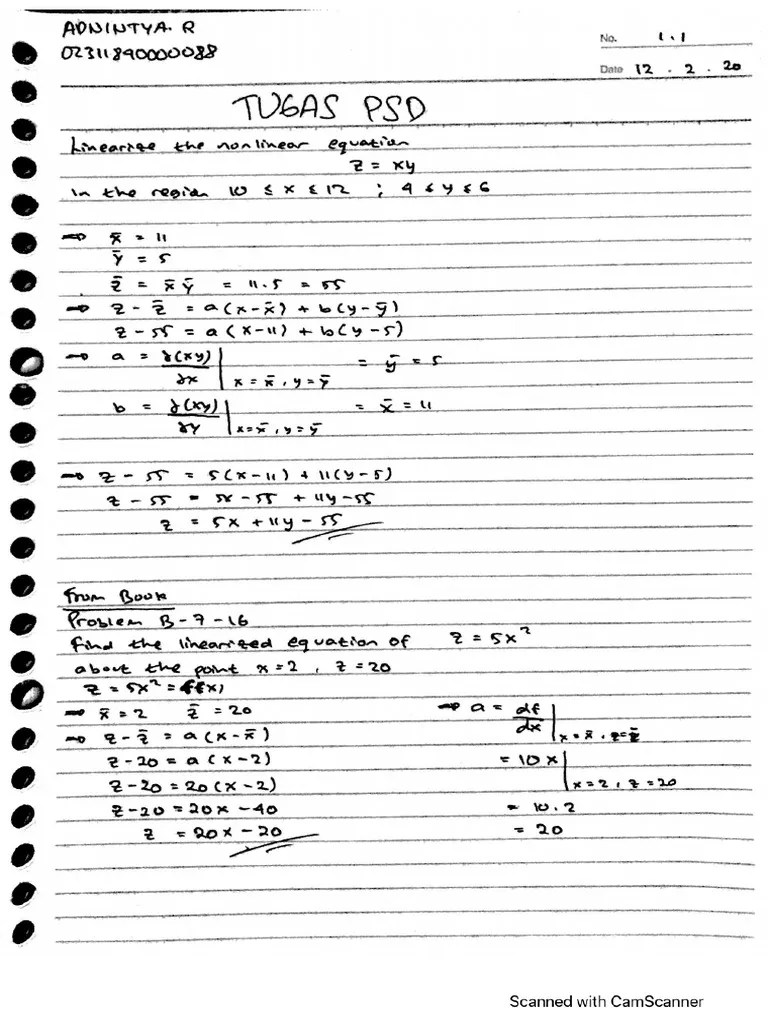 ADNINTYA. R
02311840000088
No. 1.1
Date 12 . 2 . 20
TUGAS PSD
Linearize the nonlinear equation
z = xy
In the region 10 ≤ x ≤ 12 ; 4 ≤ y ≤ 6
⇒ x̄ = 11
ȳ = 5
z̄ = x̄ ȳ = 11.5 = 55
⇒ z - z̄ = a(x-x̄) + b(y-ȳ)
z - 55 = a(x-11) + b(y-5)
⇒ a = ∂(xy)/∂x | x = x̄, y = ȳ = ȳ = 5
b = ∂(xy)/∂y | x = x̄, y = ȳ = x̄ = 11
⇒ z - 55 = 5(x-11) + 11(y-5)
z - 55 = 5x - 55 + 11y - 55
z = 5x + 11y - 55
From Book
Problem B-7-16
Find the linearized equation of z = 5x²
about the point x = 2, z = 20
z = 5x² = f(x)
⇒ x̄ = 2 z̄ = 20
⇒ z - z̄ = a(x - x̄)
z - 20 = a(x - 2)
z - 20 = 20(x - 2)
z - 20 = 20x - 40
z = 20x - 20
⇒ a = df/dx | x = x̄, z = z̄
= 10x | x = 2, z = 20
= 10.2
= 20
Scanned with CamScanner